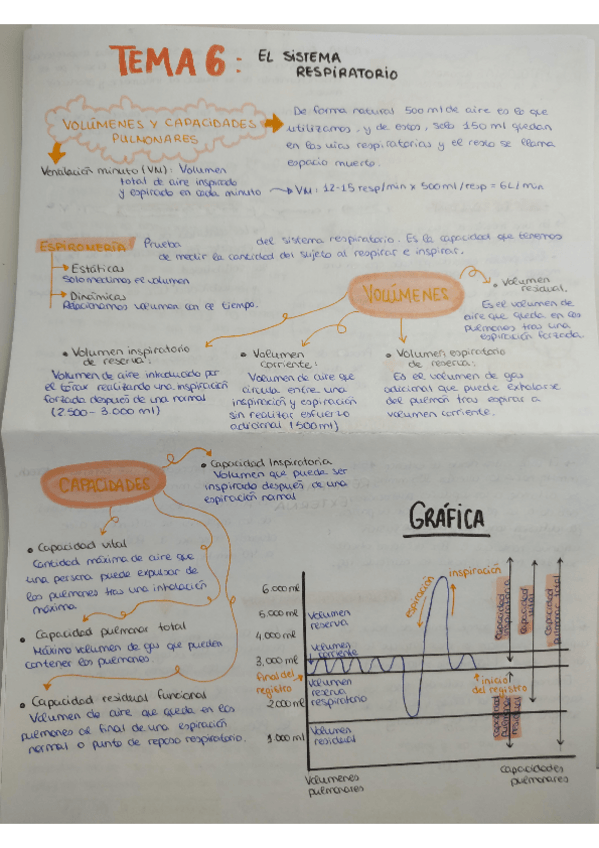 TEMA 6: EL SISTEMA
RESPIRATORIO
VOLÚMENES Y CAPACIDADES
PULMONARES
De forma natural 500 ml de aire es lo que
utilizamos, y de estos, solo 150 ml quedan
en las vías respiratorias y el resto se llama
espacio muerto.
Ventilación minuto (VM): Volumen
total de aire inspirado
y espirado en cada minuto
VM: 12-15 resp/min x 500ml/resp = 6L/min
ESPIROMERÍA
Prueba del sistema respiratorio. Es la capacidad que tenemos
de medir la cantidad del sujeto al respirar e inspirar.
Estáticas
Solo medimos el volumen
Dinámicas
Relacionamos volumen con el tiempo.
VOLÚMENES
• Volumen
residual.
Es el volumen de
aire que queda en los
pulmones tras una
espiración forzada.
• Volumen inspiratorio
de reserva:
Volumen de aire introducido por
el tórax realizando una inspiración
forzada después de una normal
(2.500 - 3.000 ml)
• Volumen
corriente:
Volumen de aire que
circula entre una
inspiración y espiración
sin realizar esfuerzo
adicional (500ml)
• Volumen espiratorio
de reserva:
Es el volumen de gas
adicional que puede exhalarse
del pulmón tras espirar a
volumen corriente.
CAPACIDADES
• Capacidad Inspiratoria
Volumen que puede ser
inspirado después de una
espiración normal
• Capacidad vital
Cantidad máxima de aire que
una persona puede expulsar de
los pulmones tras una inhalación
máxima
• Capacidad pulmonar total
Máximo volumen de gas que pueden
contener los pulmones.
• Capacidad residual funcional
Volumen de aire que queda en los
pulmones al final de una espiración
normal o punto de reposo respiratorio.
GRÁFICA
6.000 ml
5.000 ml
4.000 ml
3.000 ml
final del
registro
2.000 ml
1.000 ml
Volumen
reserva
Volumen
corriente
Volumen
reserva
respiratorio
Volumen
residual
espiración
inspiración
inicio
del registro
Capacidad
inspiratoria
Capacidad
vital
Capacidad
pulmonar total
Capacidad
pulmonar
residual
Volumenes
pulmonares
capacidades
pulmonares